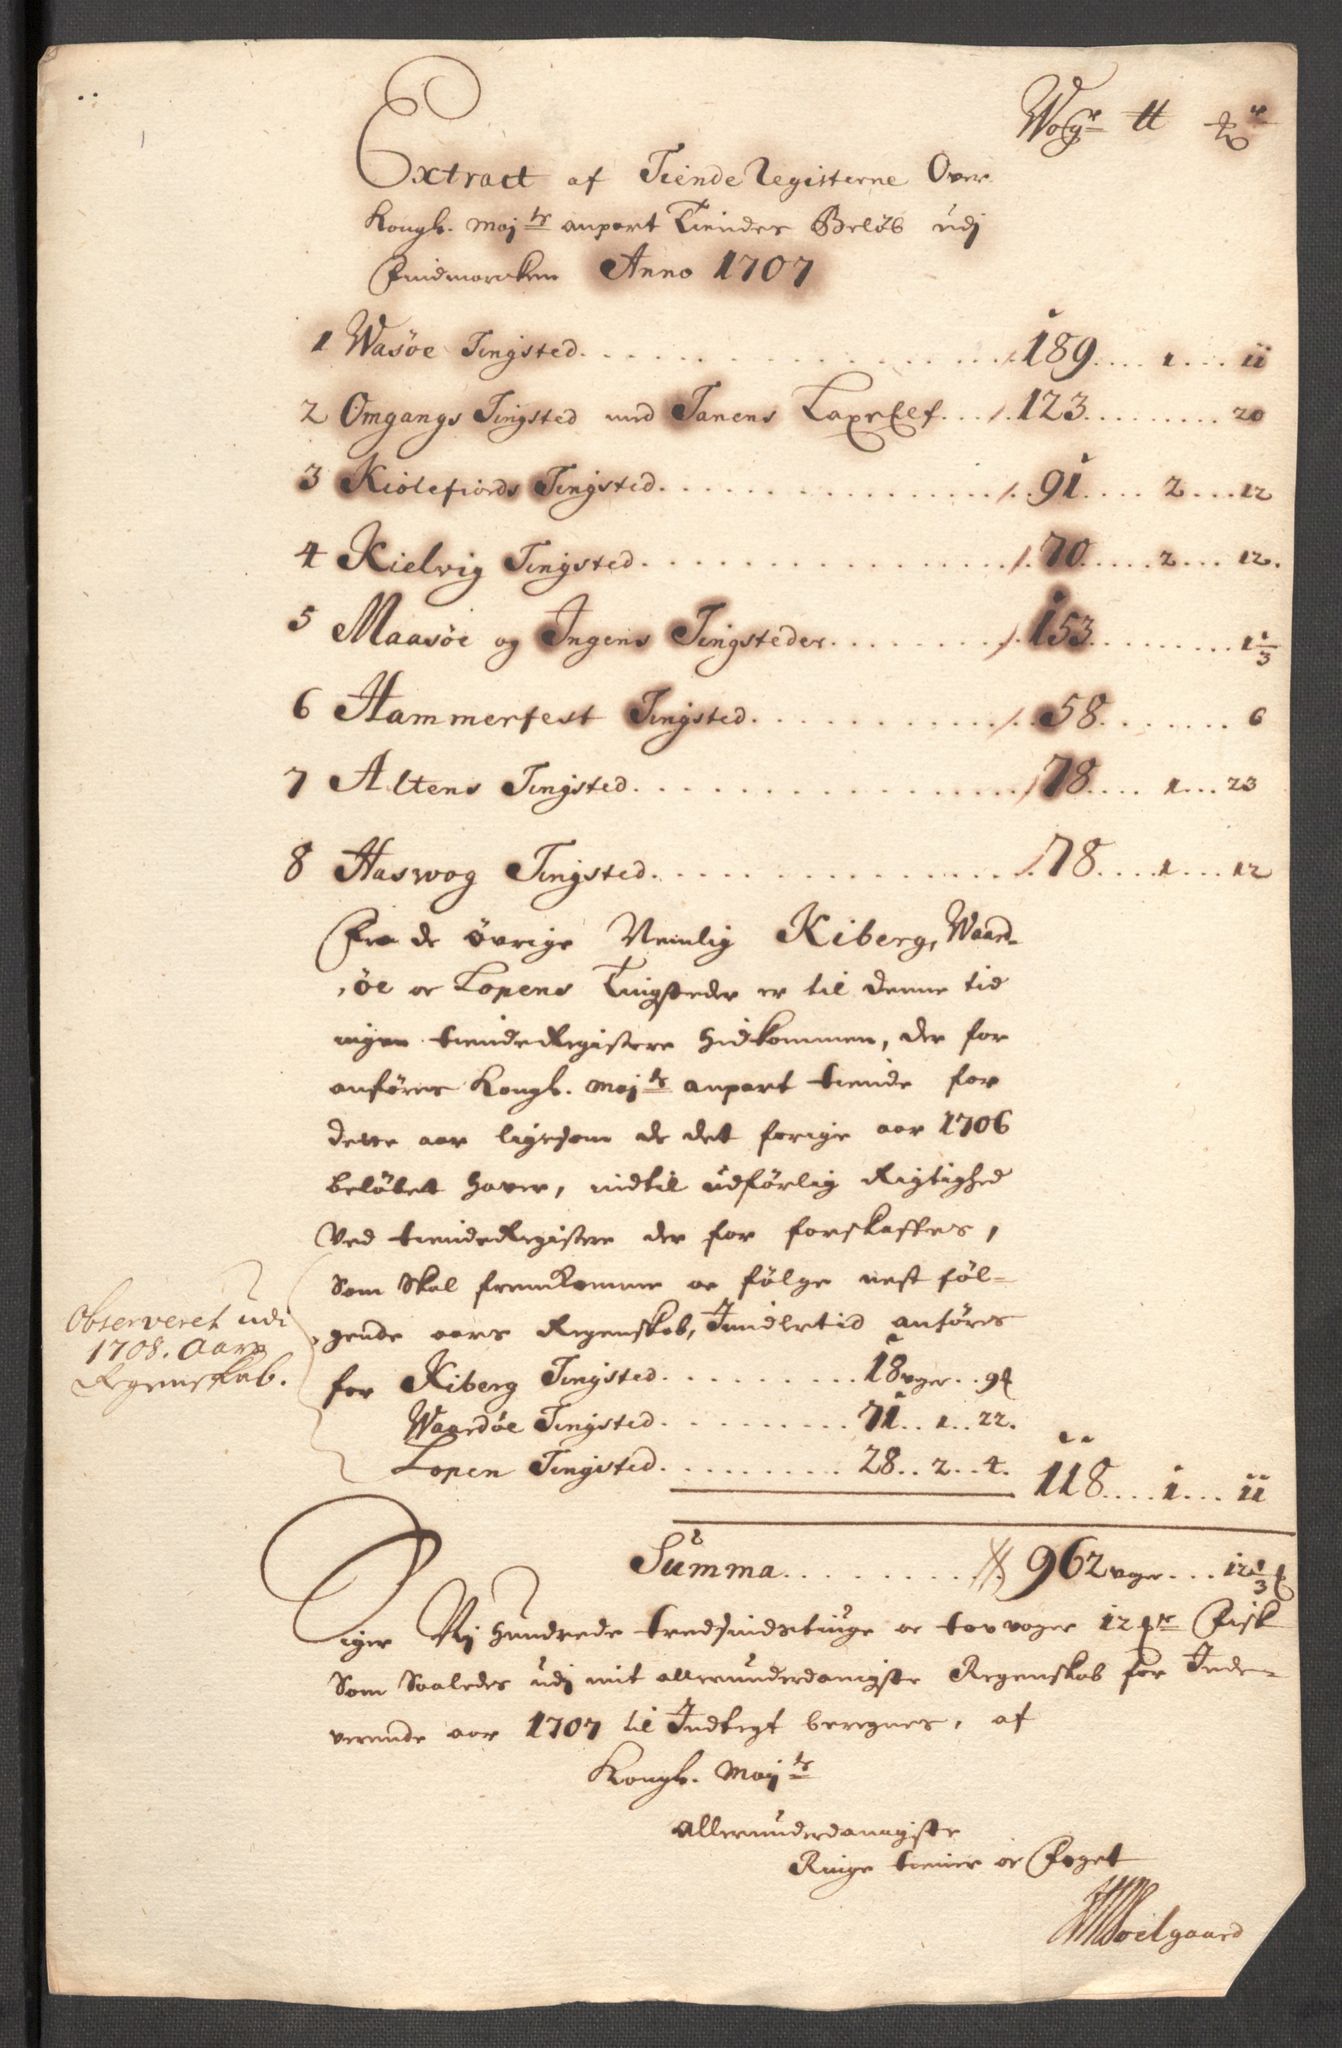 Wog:r ℔ 
Extract af Tiende Registerne Over
Kongl. Maj:ts anpart Tiendes Beløb udj
Findmarcken Anno 1707
1 Wasöe Tingsted. 189. 1. 11
2 Omgangs Tingsted med Tanens LaxeElf. 123. 20
3 Kiölefiords Tingsted. 91. 2. 12
4 Kielvig Tingsted. 70. 2. 12.
5 Maasöe og Ingens Tingsteder. 153. 1 1/3
6 Hammerfest Tingsted. 58. 6
7 Altens Tingsted. 78. 1. 23
8 Haswog Tingsted. 78. 1. 12
Fra de øvrige Nemlig Kiberg, Waard-
öe oc Lopens Tingsteder er til denne tid
ingen tiende Registere hidkommen, der for
anføres Kongl. Maj:ts anpart tiende for
dette aar ligesom de det forige aar 1706
beløbet haver, indtil udførlig Rigtighed
Ved tiende Registere der for forskaffes,
Som Skal fremkomme oc følge nest føl-
gende aars Regenskab, Imidlertid anføres
for Kiberg Tingsted. 18 vger. 9
Waardöe Tingsted. 71. 1. 22.
Lopen Tingsted. 28. 2. 4. 118. 1. 11
Observeret udi
1708. Aars
Regenskab.
Summa. 962 vger. 12 1/3
Siger Nj hundrede tredsindstiuge oc tov voger 12 Fisk
Som Saaledes udj mit allerunderdanigste Regenskab for Inde-
verende aar 1707 til Indtegt beregnes, af
Kongl. Maj:ts
allerunderdanigste
Ringe tiener oc Foget
Soelgaard